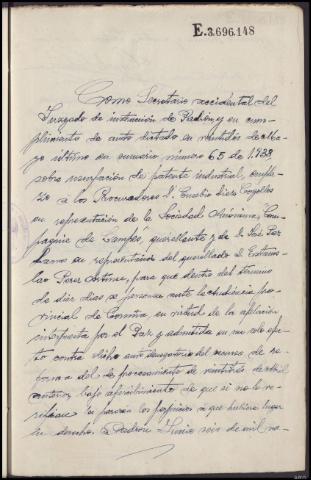 E.3.696.148
Como Secretario accidental del
Juzgado de instrucción de Padrón, y en cum-
plimiento de auto dictado en veintidós de Ma-
yo último en sumario número 65 de 1933,
sobre usurpación de patente industrial, empla-
zo a los Procuradores D. Eusebio
en representación de la Sociedad Anónima, Com-
pagnie de Lampes, querellante, y de D. Luis Paz
en representación del querellado D. Estanis-
lao Pérez Artime, para que dentro del término
de diez días se personen ante la Audiencia pro-
vincial de Coruña, en virtud de la apelación
interpuesta por el Paz y admitida en un solo efec-
to contra dicho auto denegatorio del recurso de re-
forma del de procesamiento de veintitrés de Abril
anterior, bajo apercibimiento de que si no lo ve-
rifican les pararán los perjuicios a que hubiere lugar
en derecho. Padrón Junio seis de mil no-